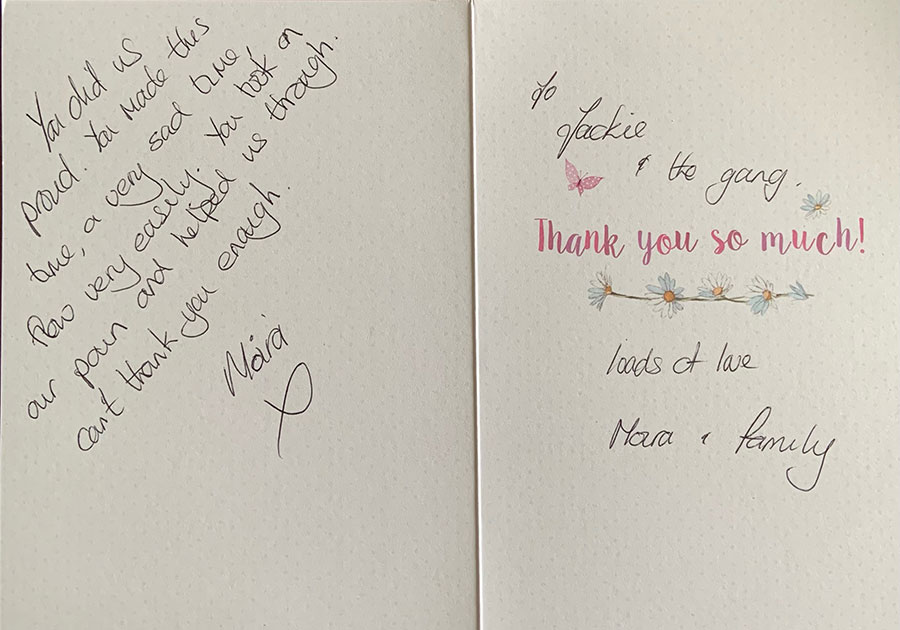 You did us
proud. You made this
time, a very sad time,
flow very easily. You took on
our pain and helped us through.
can't thank you enough.
Maira
X
To
Jackie
& the gang.
Thank you so much!
loads of love
Maira & family